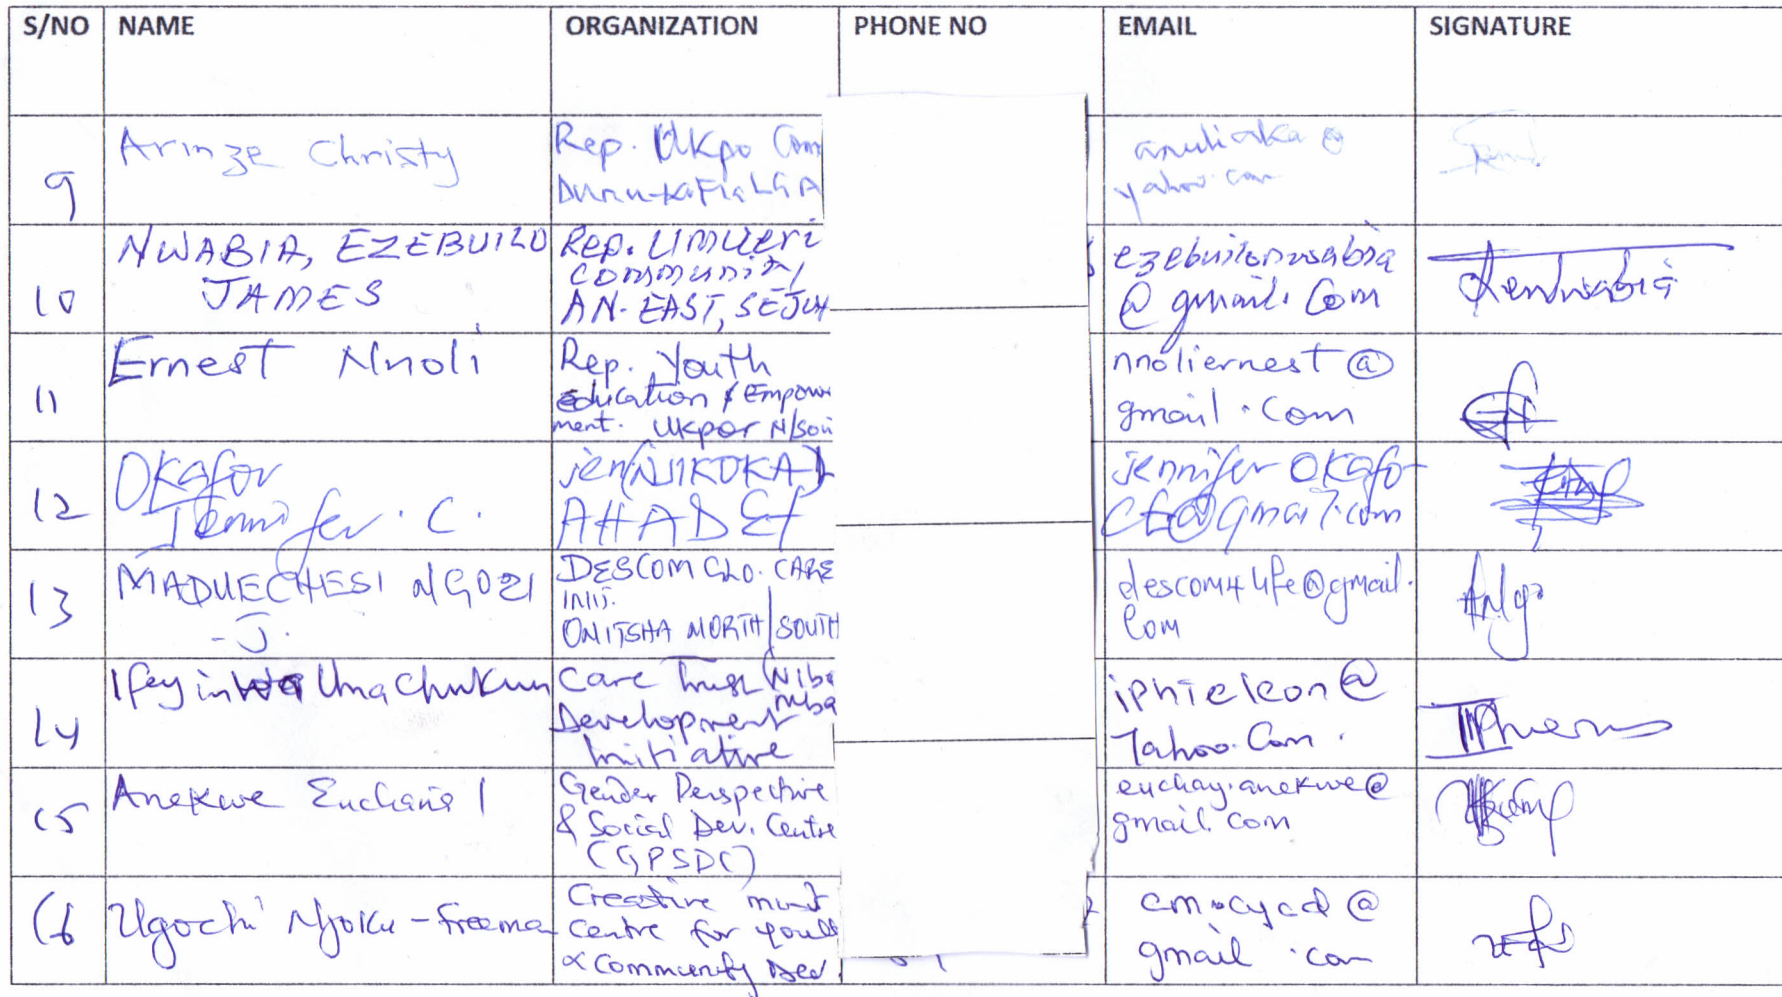 S/NO NAME ORGANIZATION PHONE NO EMAIL SIGNATURE
9 Arinze Christy
Rep. Ukpo Com
Dunukofia LGA
yahoo.com
10 NWABIA, EZEBUILO
JAMES
Rep. Umueri
Community
AN-EAST,
ezebuilonwabia
@gmail.com
11 Ernest Nnoli
Rep. Youth
education & Empow
ment. Ukpor N/Sou
nnoliernest@
gmail.com
12 Okafor
Jennifer. C.
jen(NJIKOKA)
AHADEF
jennifer Okafo
@gmail.com
13 MADUECHESI NGOZI
- J.
DESCOM GLO. CARE
INIT.
ONITSHA NORTH/SOUTH
descom4life@gmail.
com
14 Ifeyinwa Umachukwu
Care Trust
Development
Initiative
iphieleon@
Yahoo.Com.
15 Anekwe Eucharia I
Gender Perspective
& Social Dev. Centre
(GPSDC)
euchay.anekwe@
gmail.com
16 Ugochi Njoku-freeman
Creative
Centre for youth
& Community Dev.
cmcycd@
gmail.com